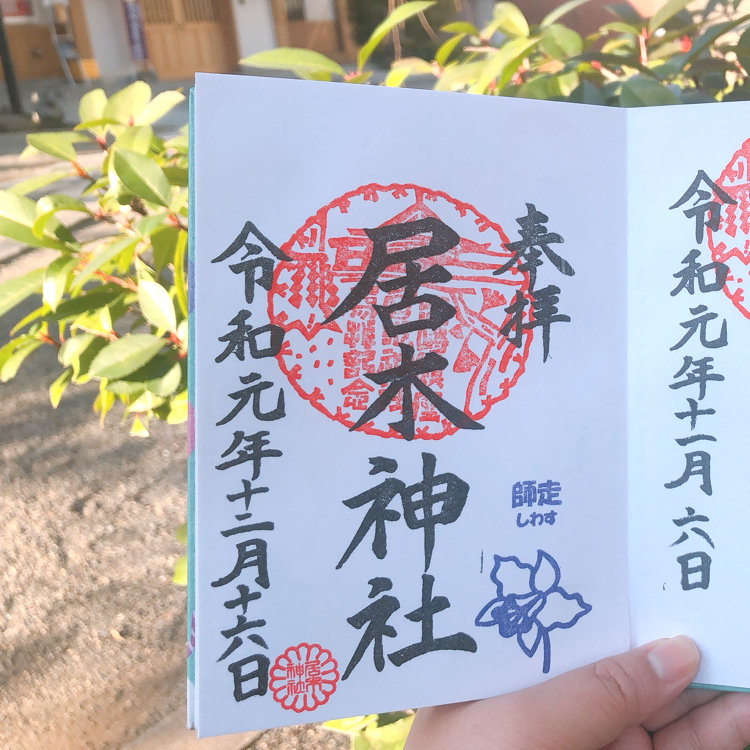 令和元年十一月六日
奉拝
居木神社
師走
しわす
令和元年十二月十六日
居木
神社